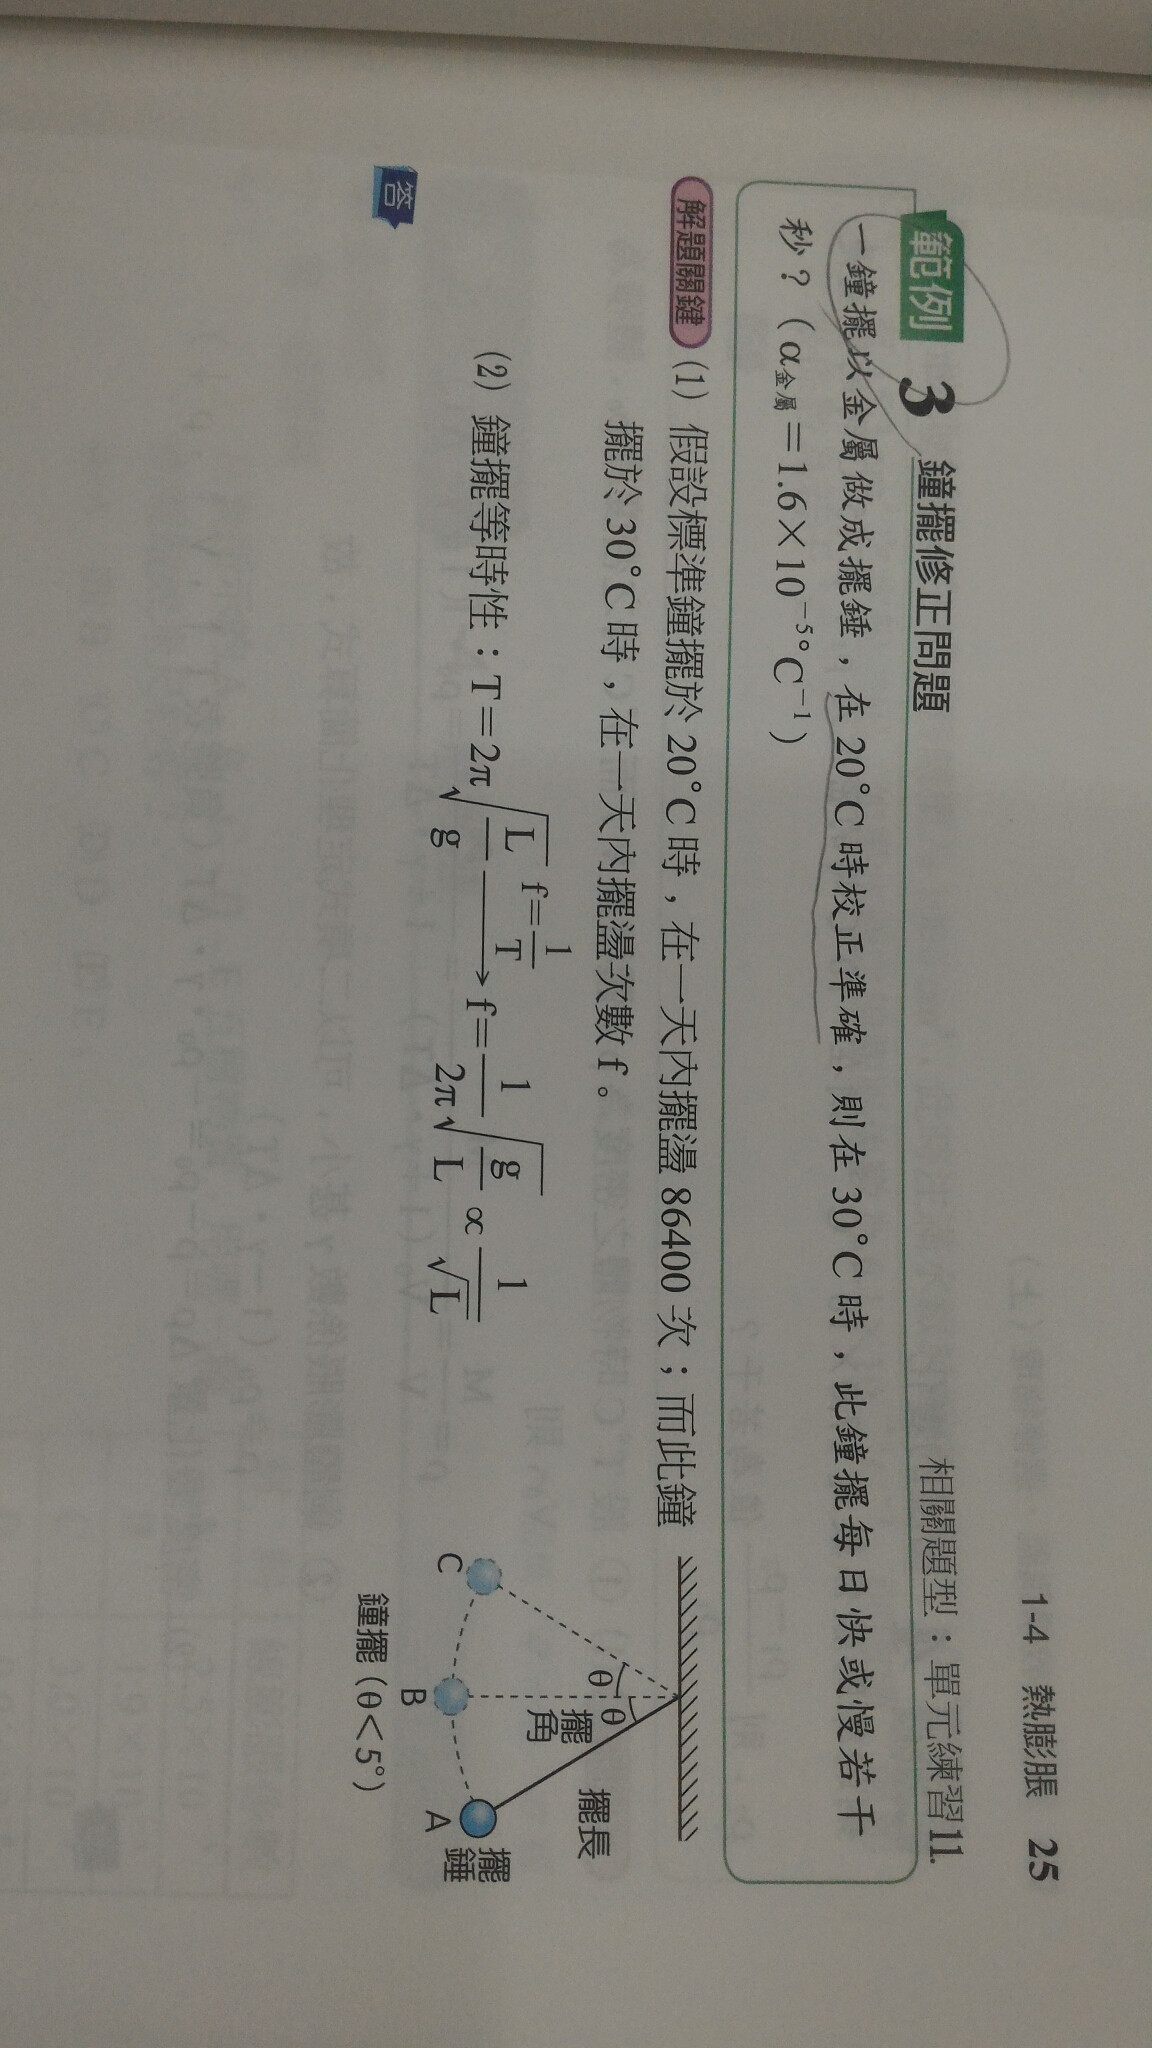 1-4 熱膨脹 25
範例 3 鐘擺修正問題 相關題型：單元練習11.
一鐘擺以金屬做成擺錘，在 20°C 時校正準確，則在 30°C 時，此鐘擺每日快或慢若干
秒？（α金屬＝1.6×10⁻⁵°C⁻¹）
解題關鍵 (1) 假設標準鐘擺於 20°C 時，在一天內擺盪 86400 次；而此鐘
擺於 30°C 時，在一天內擺盪次數 f。
(2) 鐘擺等時性：T＝2π√(L/g) f＝1/T → f＝1/2π √(g/L) ∝ 1/√L
擺長
擺角
θ θ
C B A
擺錘
鐘擺（θ＜5°）
答